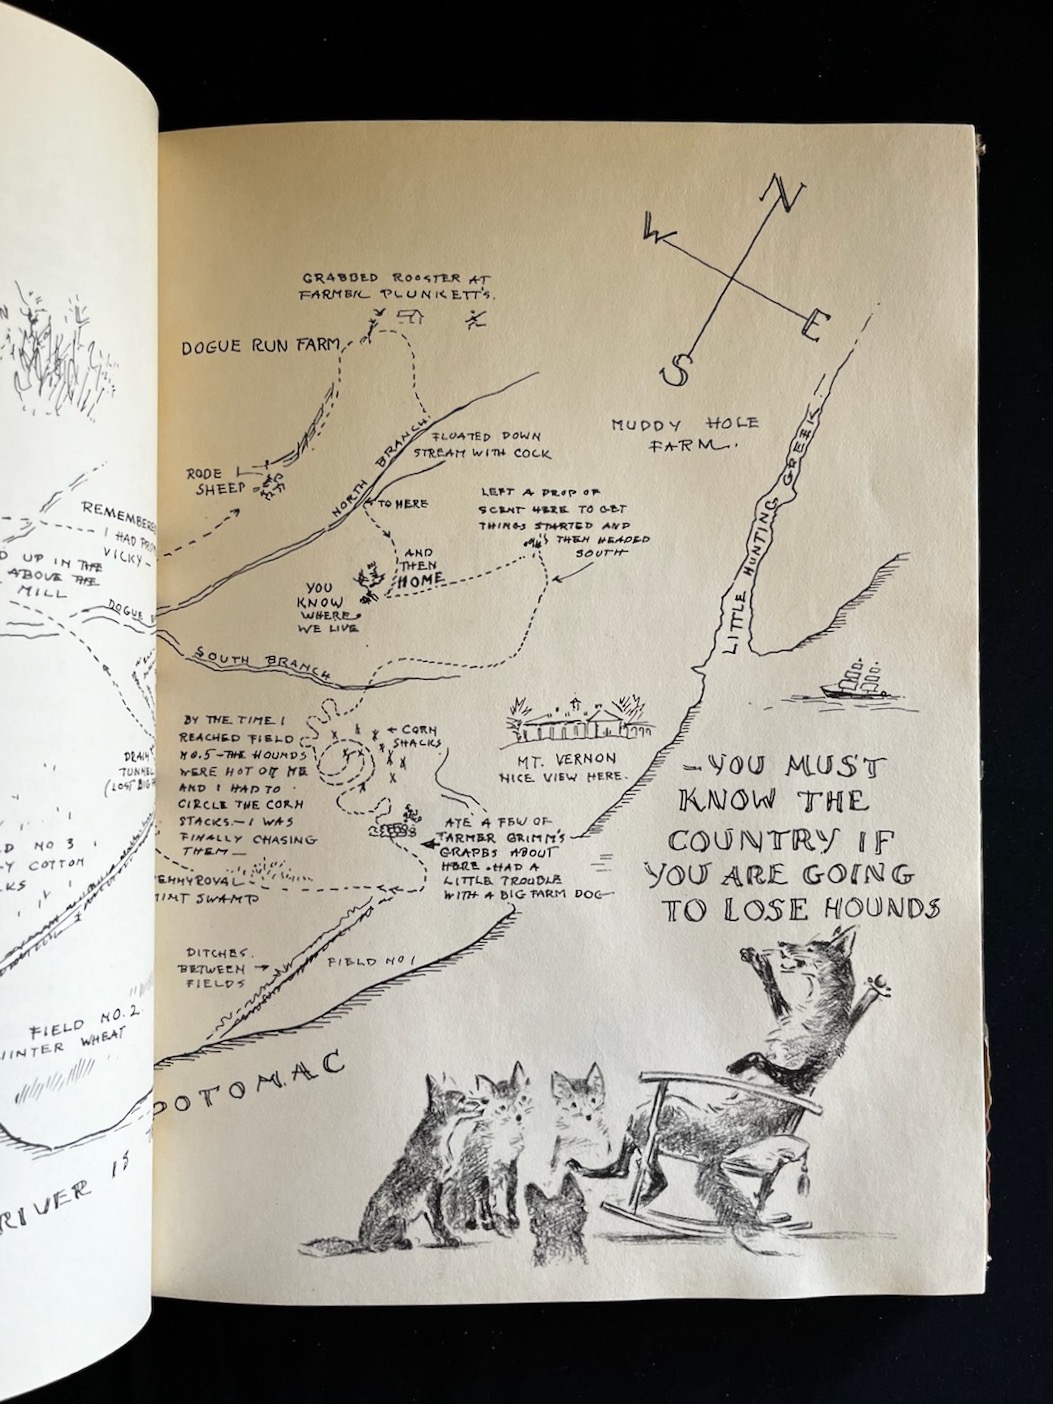 N
W
E
S
GRABBED ROOSTER AT
FARMER PLUNKETT'S.
DOGUE RUN FARM
MUDDY HOLE
FARM.
NORTH BRANCH
FLOATED DOWN
STREAM WITH COCK
RODE
SHEEP
TO HERE
LEFT A DROP OF
SCENT HERE TO GET
THINGS STARTED AND
THEN HEADED
SOUTH
AND
THEN
HOME
YOU
KNOW
WHERE
WE LIVE
LITTLE HUNTING CREEK
REMEMBERED
I HAD
VICKY—
UP IN THE
ABOVE THE
MILL
DOGUE
SOUTH BRANCH
BY THE TIME I
REACHED FIELD
NO.5—THE HOUNDS
WERE HOT ON ME
AND I HAD TO
CIRCLE THE CORN
STACKS.—I WAS
FINALLY CHASING
THEM—
CORN
SHACKS
MT. VERNON
NICE VIEW HERE.
—YOU MUST
KNOW THE
COUNTRY IF
YOU ARE GOING
TO LOSE HOUNDS
TUNNEL
(LOST BIG
ATE A FEW OF
FARMER GRIMM'S
GRAPES ABOUT
HERE.HAD A
LITTLE TROUBLE
WITH A BIG FARM DOG
NO 3
COTTON
SWAMP
DITCHES.
BETWEEN
FIELDS
FIELD NO 1
FIELD NO. 2.
WINTER WHEAT
POTOMAC
RIVER IS